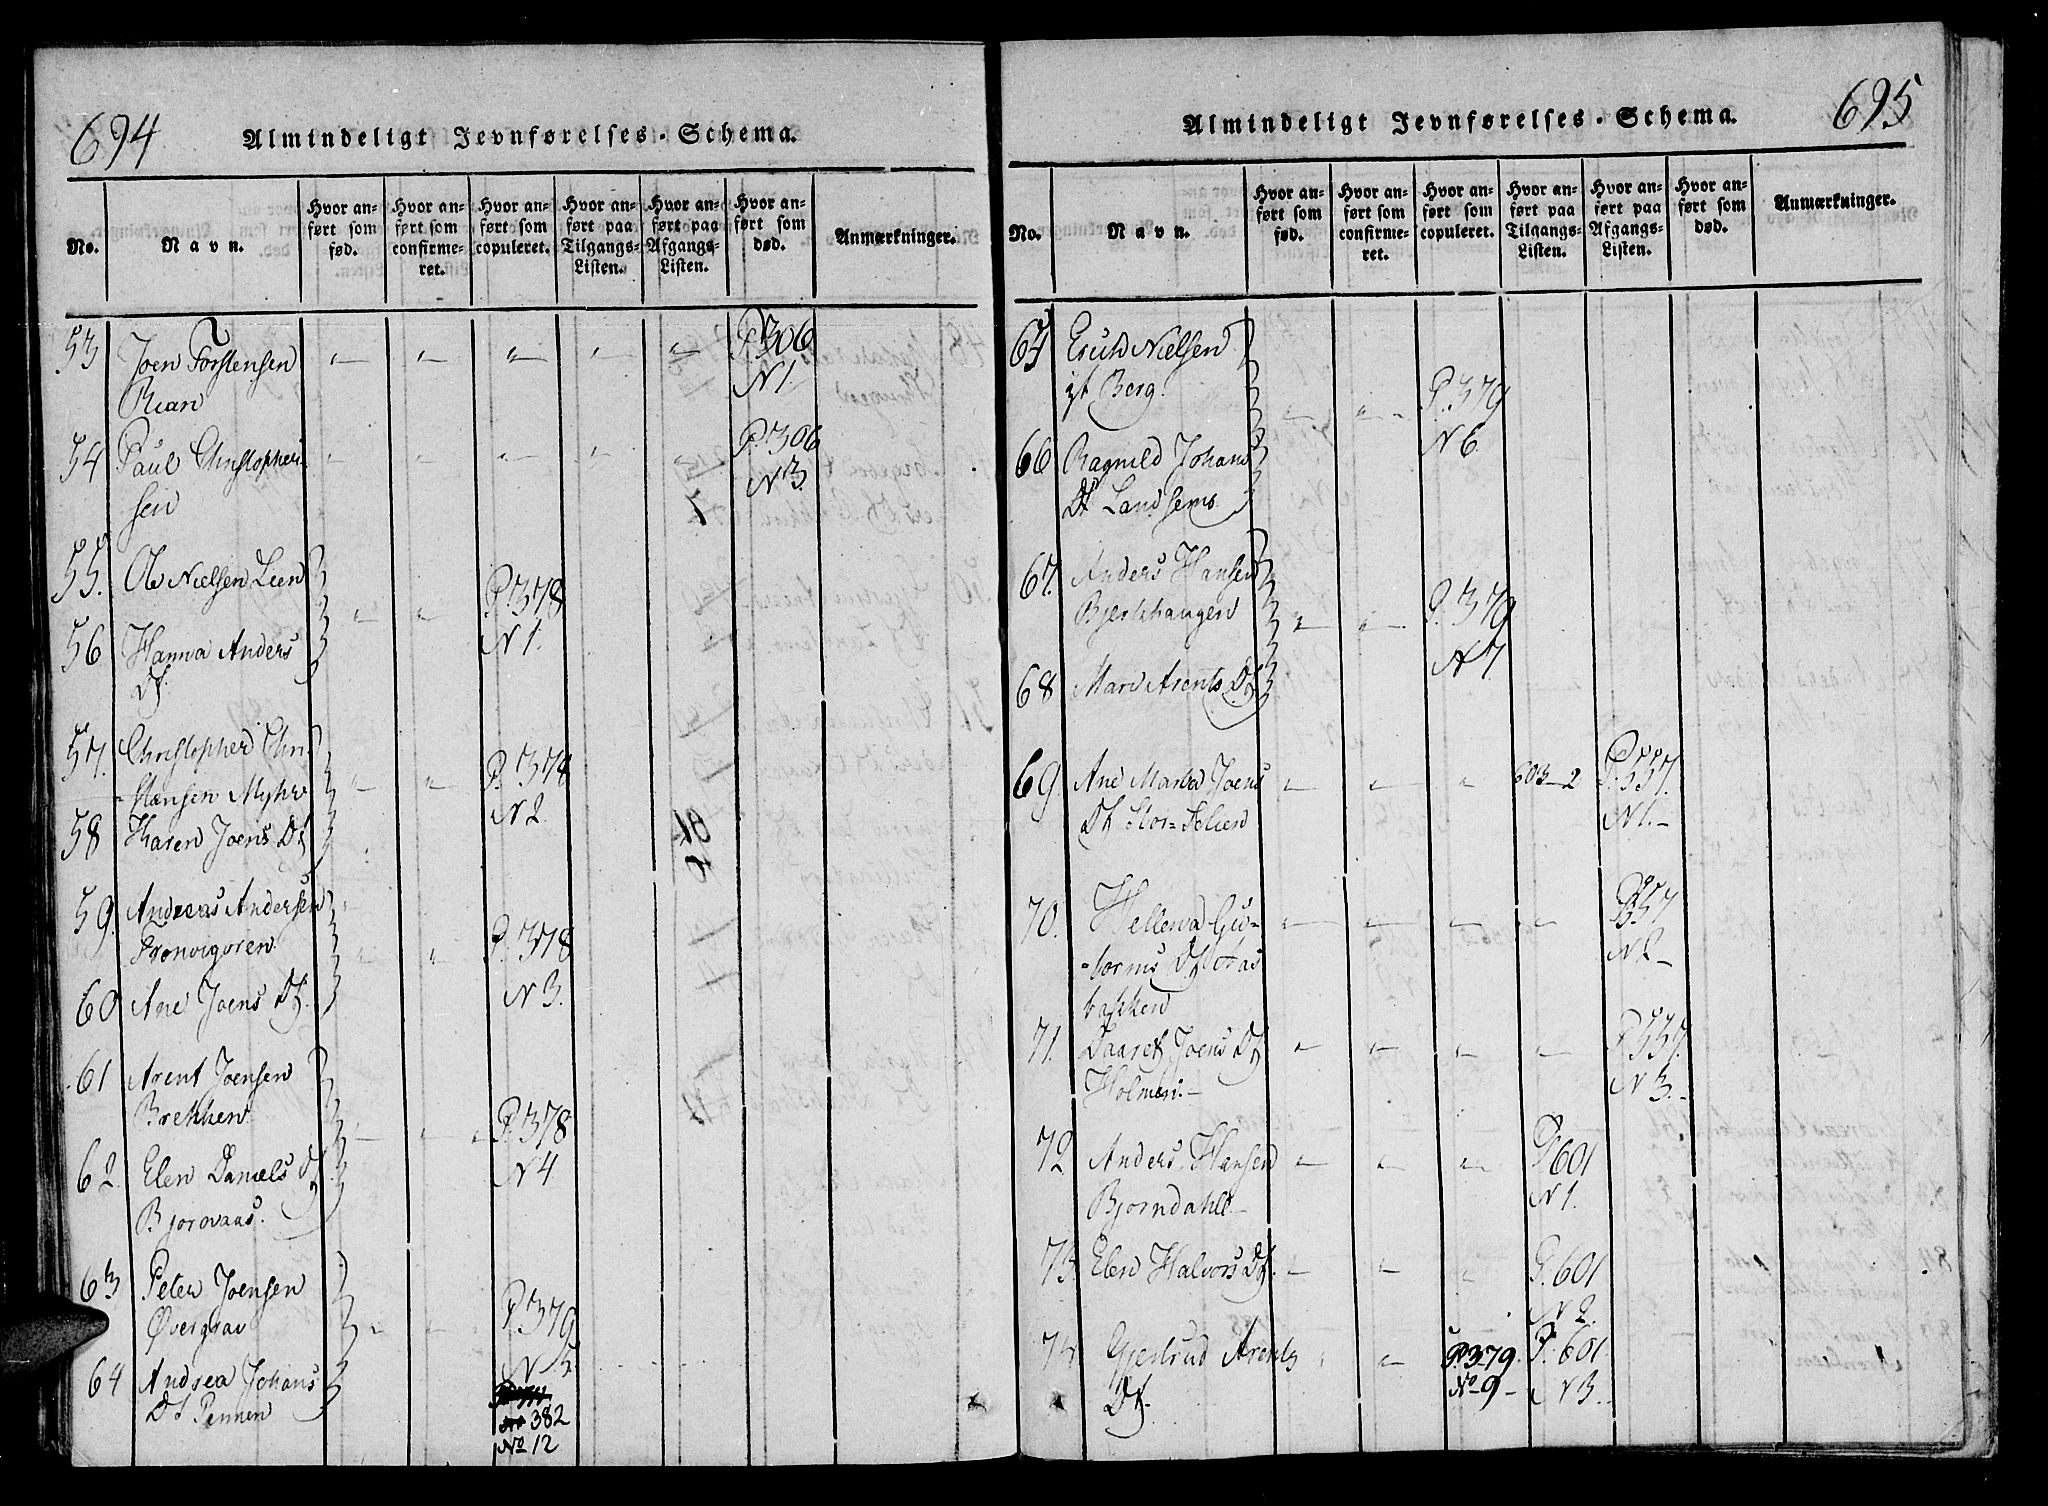 694
Almindeligt Jevnførelses-Schema.
No.
Navn.
Hvor anført som fød.
Hvor anført som confirmeret.
Hvor anført som copuleret.
Hvor anført paa Tilgangs-Listen.
Hvor anført paa Afgangs-Listen.
Hvor anført som død.
Anmærkninger.
53 Joen Torstensen " " " " " P. 306
Rian N 1.
54 Paul Christopher- " " " " " P. 306
sen N 3.
55. Ole Nielsen Lien " " P. 378
56 Hanna Anders N 1.
Dt.
57. Christopher Chri-
stensen Myhr " " P. 378
58 Karen Joens Dt N 2.
59. Andreas Andersen "
Fronvigoren " " P. 378
60 Ane Joens Dt. N 3.
61 Arent Joensen
Brekken " " P. 378
62. Elen Daniels Dt N 4
Bjoraaas.
63 Peter Joensen
Øvergrav " " P. 379
64 Andrea Johans N 5.
Dt Pennen 382
No 12
695
Almindeligt Jevnførelses-Schema.
No.
Navn.
Hvor anført som fød.
Hvor anført som confirmeret.
Hvor anført som copuleret.
Hvor anført paa Tilgangs-Listen.
Hvor anført paa Afgangs-Listen.
Hvor anført som død.
Anmærkninger.
65 Erich Nielsen
Berg. " " P. 379
66 Ragnild Johans N 6.
Dt Landsems
67. Anders Hansen
Bjerkhaugen " " P. 379
68 Mari Arents Dt N 7
69 Ane Marta Joens " " " 603-2 P. 557.
Dt Stor- N 1.-
70. Hellena Gu- " " " " P. 557
-torms Dt Aas N 2-
bakken
71. Daaret Joens Dt " " " " P. 557.
Holmen.- N 3.-
72 Anders Hansen " " " P. 601
Bjorndahl- N 1.
73. Elen Halvors Dt. " " " P. 601
N 2.
74 Gjertrud Arents " " P. 379. P. 601
Dt. No 9- N 3.